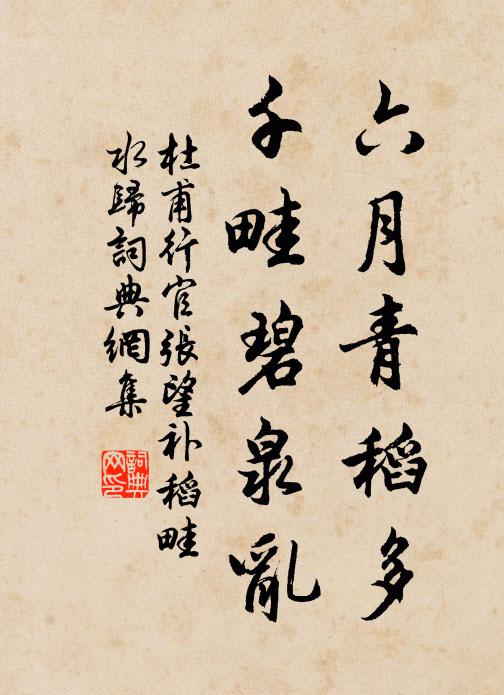 六月青稻多
千畦碧泉亂
杜甫行官張望补稻畦
水歸詞典網集
詞典
网印